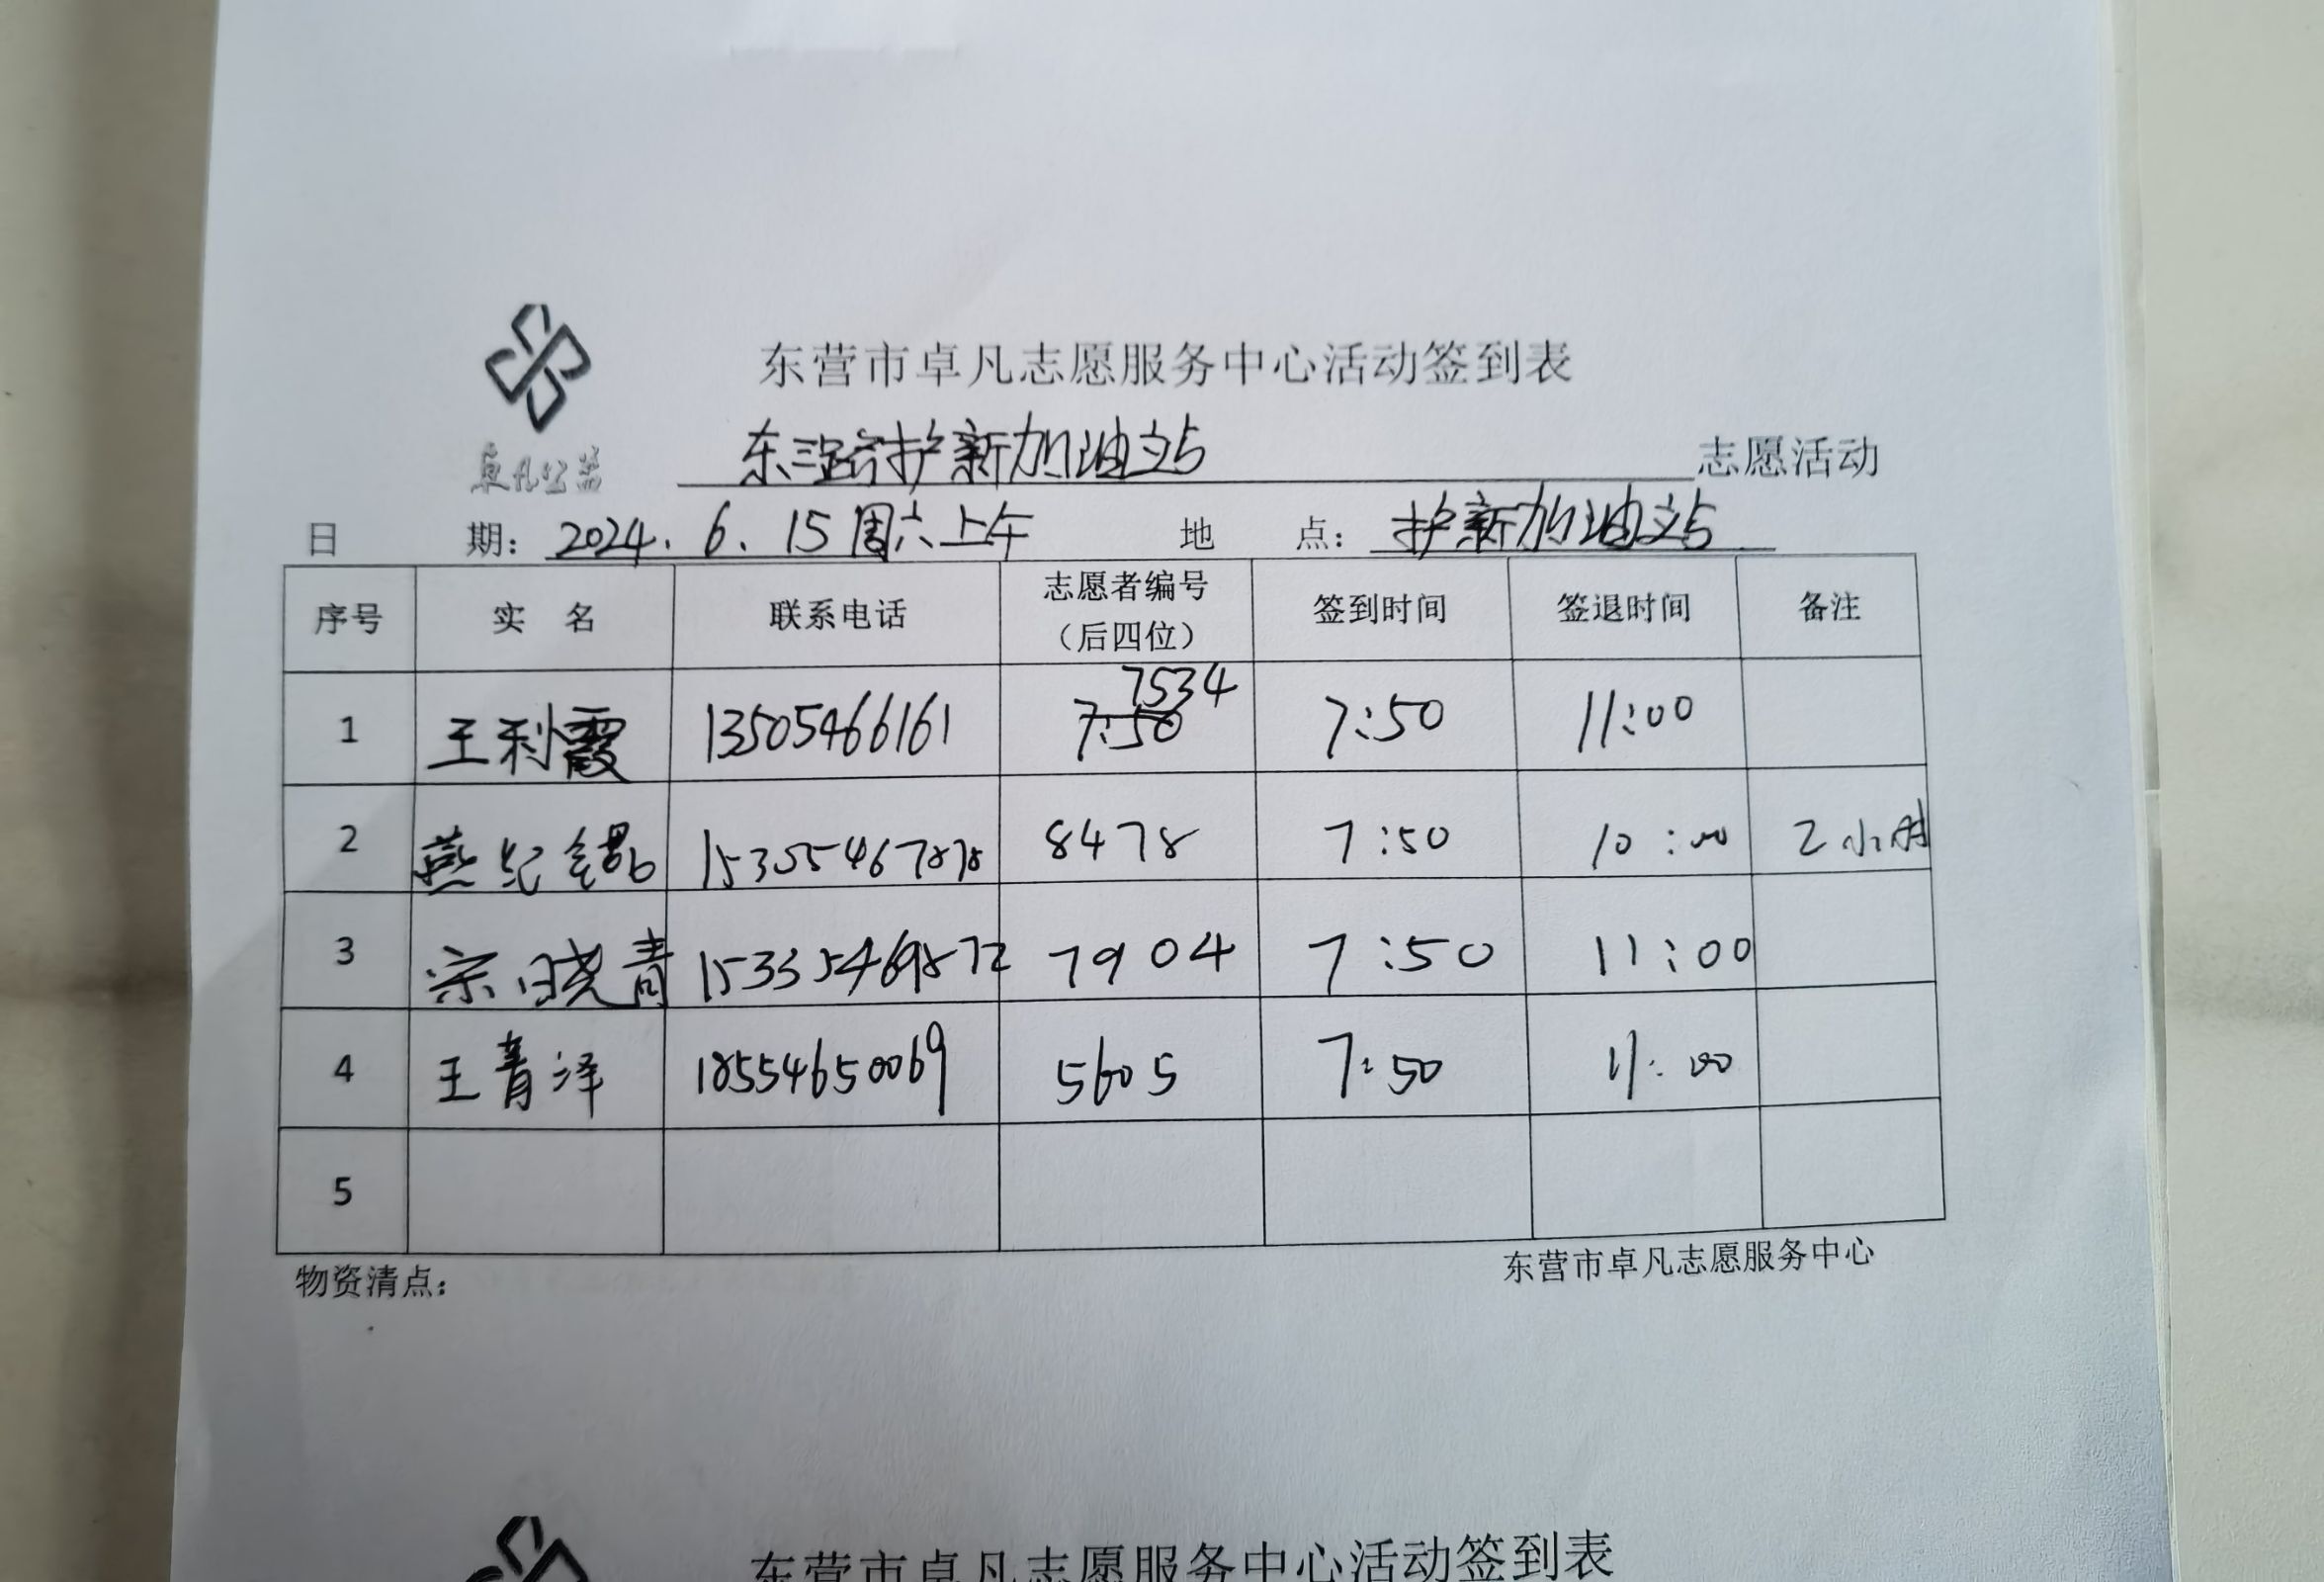 东营市卓凡志愿服务中心活动签到表
卓凡公益
东三路护新加油站 志愿活动
日 期: 2024.6.15周六上午 地 点: 护新加油站
序号 实 名 联系电话 志愿者编号(后四位) 签到时间 签退时间 备注
1 王利霞 13505466161 7:50 7534 7:50 11:00
2 燕纪 8478 7:50 10:00 2小时
3 宗晓青 15335469872 7904 7:50 11:00
4 王青泽 18554650069 5605 7:50 11:00
5
物资清点: 东营市卓凡志愿服务中心
东营市卓凡志愿服务中心活动签到表